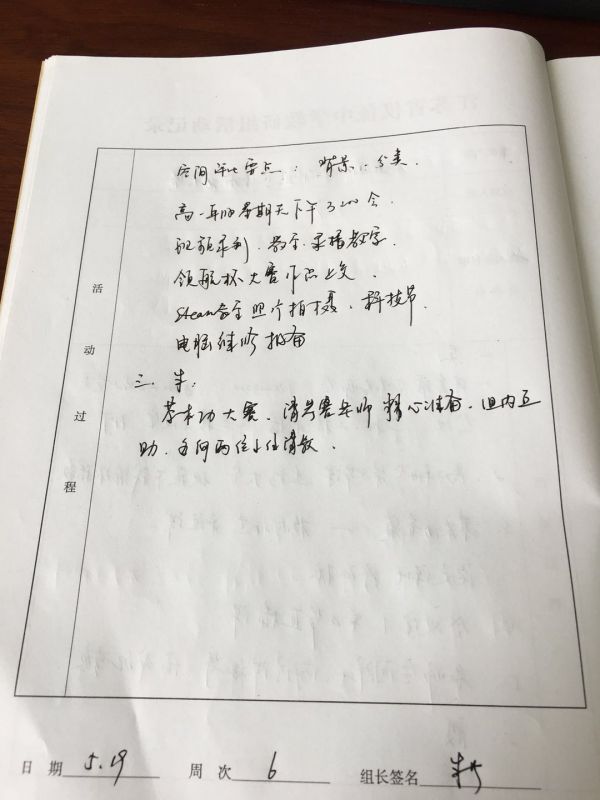 空间评比要点：背景、分类.
高一年的星期天下午3:00会.
录播教室.
领航杯大赛作品上交.
Steam教室照片拍摄、科技节.
电脑维修报备
三.朱:
基本功大赛.请参赛老师精心准备.组内互
助.多向两位主任请教.
活动过程
日 期 5.19 周 次 6 组长签名